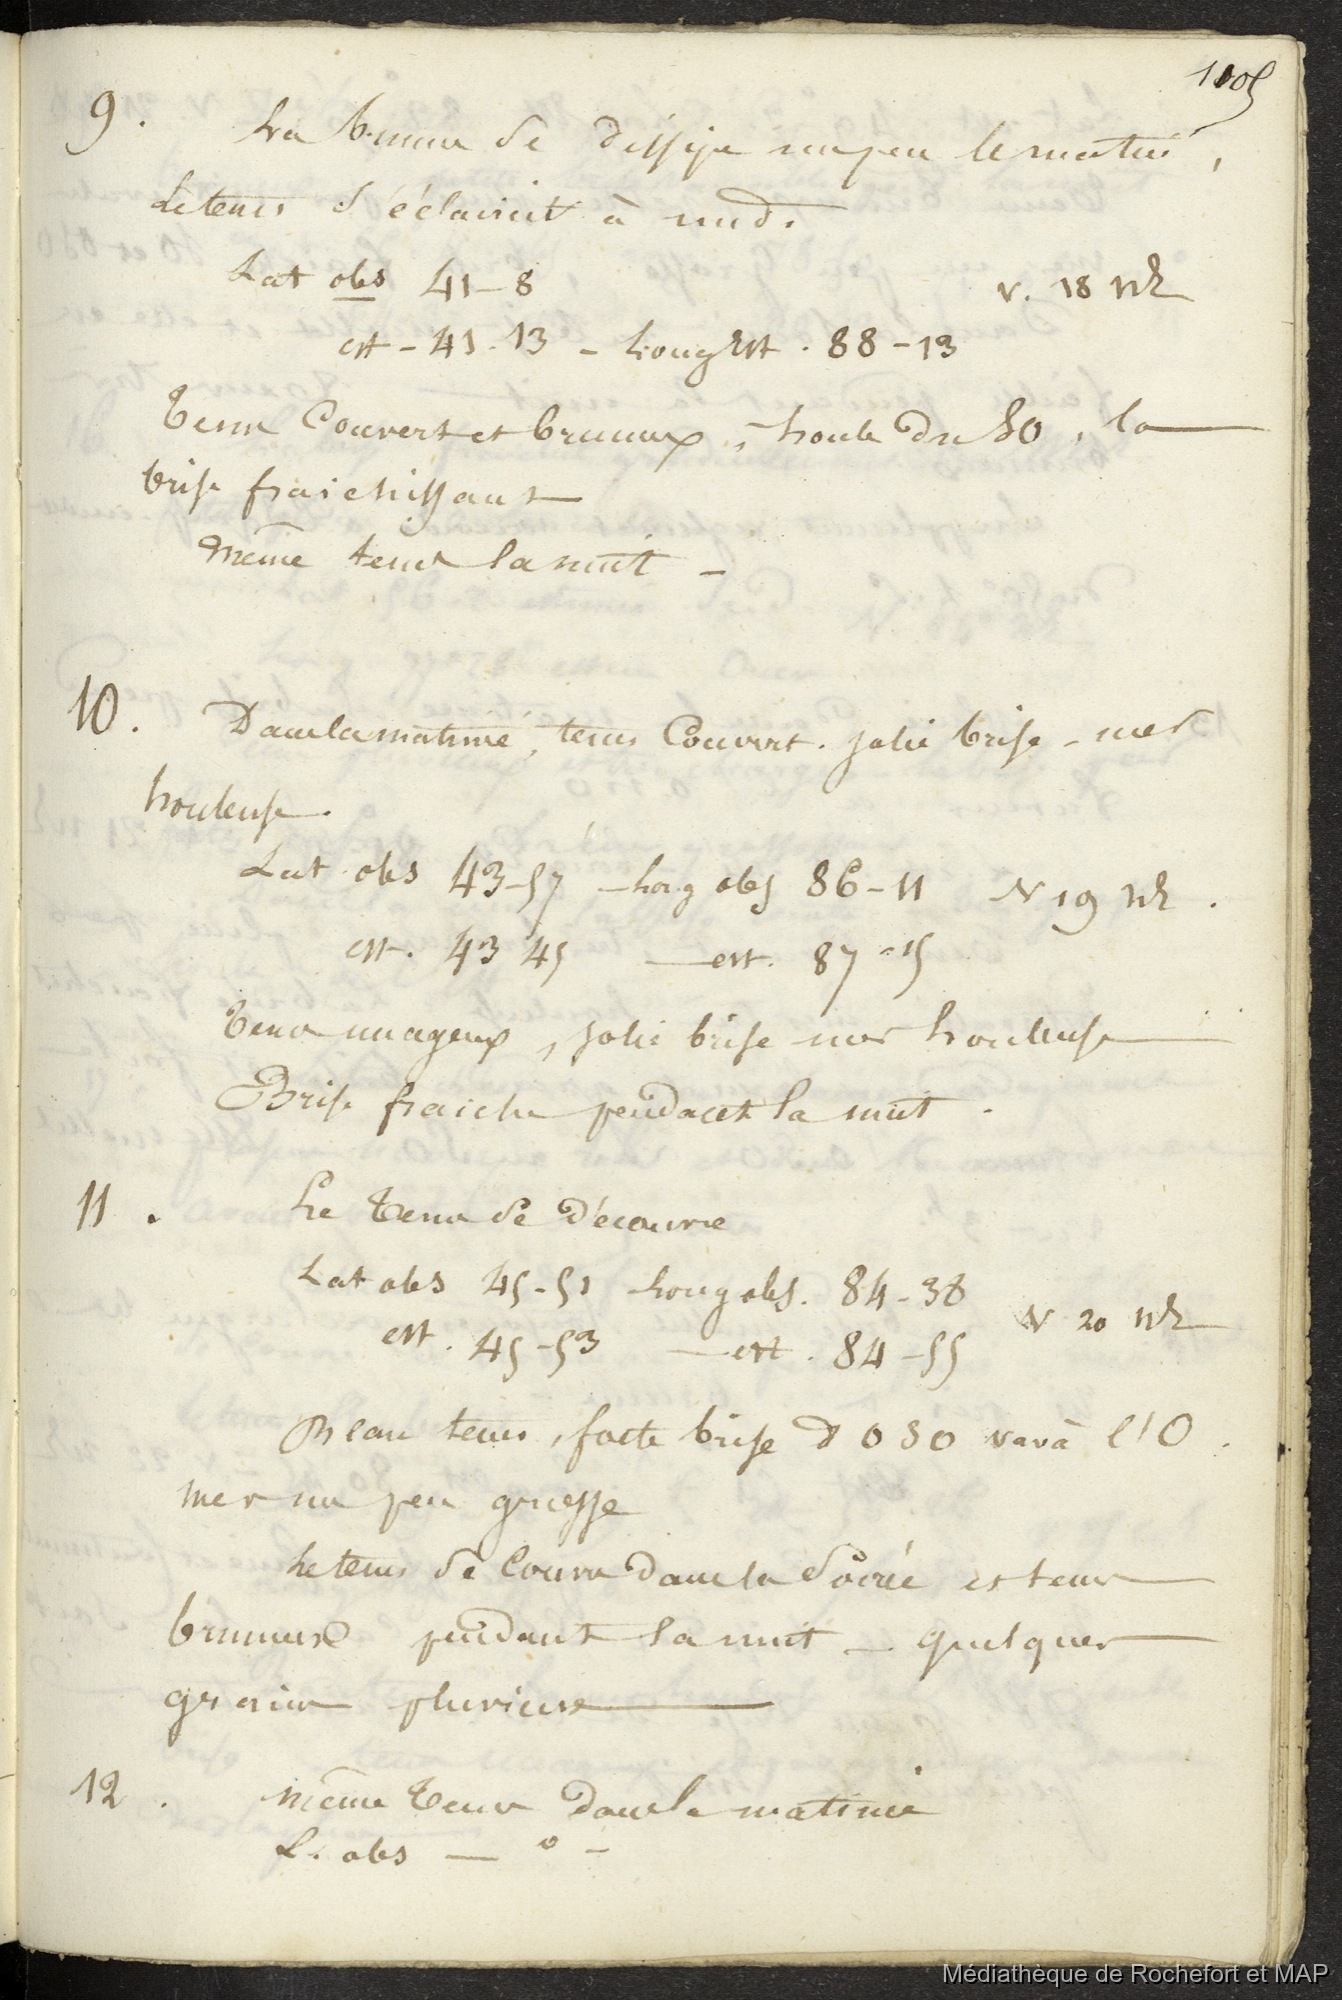 1005
9. La brume se dissipe un peu le matin,
Le tems s'éclaircit à midi
Lat obs 41-8 v. 18 Nds
est - 41.13 - Long Est. 88-13
Tems Couvert et brumeux, houle du SO, la
brise fraichissant
Même tems la nuit -
10. Dans la matinée, tems Couvert. jolie brise - mer
houleuse.
Lat obs 43-57 - Long obs 86-11 N 19 Nds.
est. 43 45 - est. 87-15
Tems nuageux, jolie brise mer houleuse
Brise fraiche pendant la nuit.
11. Le Tems se découvre
Lat obs 45-51 Long obs. 84-38
est. 45-53 - est. 84-55 N 20 Nds
Beau tems, forte brise d'OSO à l'O.
mer un peu grosse
Le tems se Couvre dans la Soirée et tems
brumeux pendant la nuit - quelques
grains pluvieux
12. Même Tems dans la matinée
L. obs - ° -
Médiathèque de Rochefort et MAP